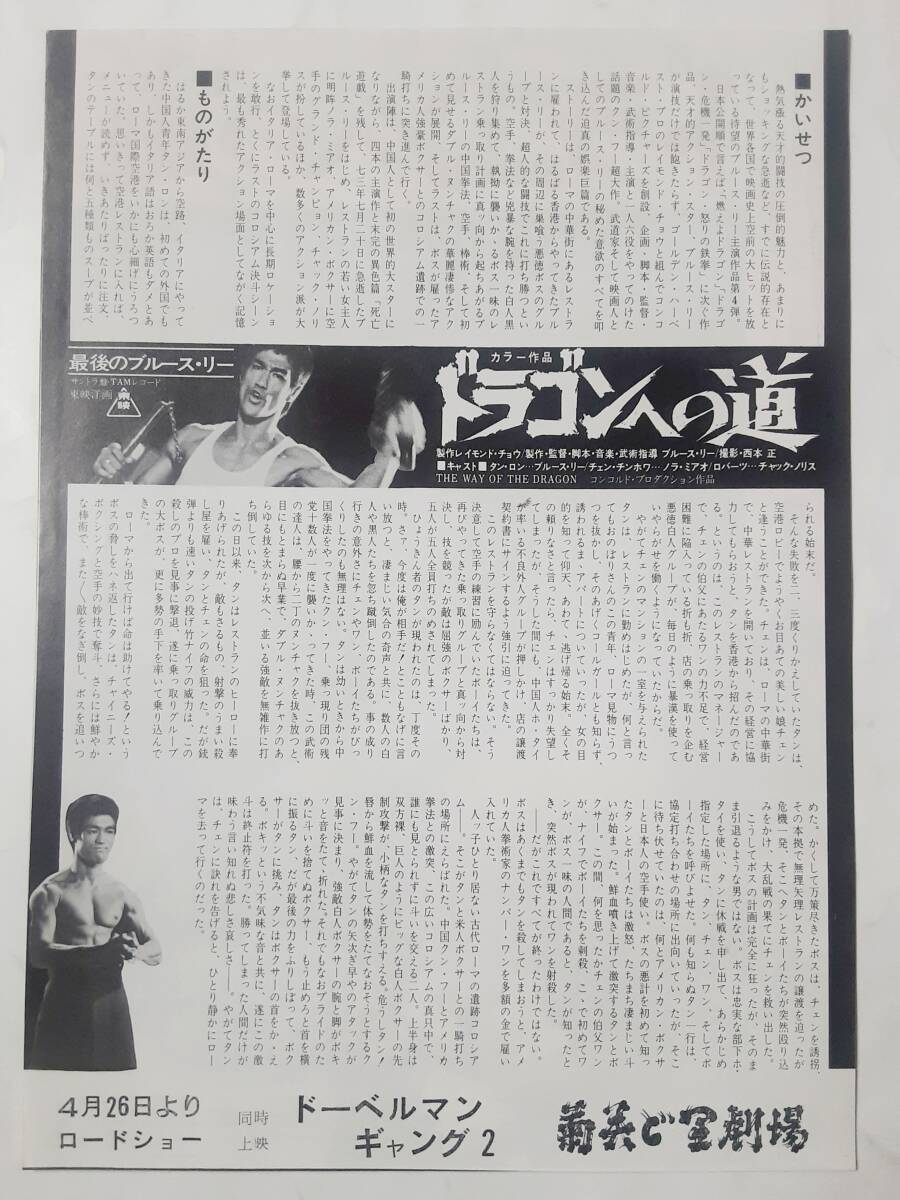 ■かいせつ
熱気漲る天才的闘技の圧倒的魅力と、あまりに
もショッキングな急逝など、すでに伝説的存在と
なって、世界各国で映画史上空前の大ヒットを放
っている待望のブルース・リー主演作品第4弾。
日本公開順で言えば、「燃えよドラゴン」「ドラゴ
ン・危機一発」「ドラゴン・怒りの鉄拳」に次ぐ作
品。天才的アクション・スター、ブルース・リー
が演技だけでは飽きたらず、ゴールデン・ハーベ
スト・プロのレイモンド・チョウと組んでコンコ
ルド・ピクチャーズを創設、企画・脚本・監督・
音楽・武術指導・主演と一人六役をやってのけた
話題のクン・フー超大作。武道家そして映画人と
してのブルース・リーの秘めた意欲のすべてを叩
き込んだ迫真の娯楽巨篇である。
ストーリーは、ローマの中華街にあるレストラ
ンに雇われて、はるばる香港からやってきたブル
ース・リーが、その周辺に巣喰う悪徳ボスのグル
ープと対決、超人的な闘技でこれに打ち勝つとい
うもの。空手、拳法など兇暴な腕を持った白人黒
人を狩り集めて、執拗に襲いかゝるボス一味のレ
ストラン乗っ取り計画に真ッ向から起ちあがるブ
ルース・リーの中国拳法、空手、棒術、そして初
めて見せるダブル・ヌンチャクの華麗凄惨なアク
ションが展開、そしてラストは、ボスが雇ったア
メリカ人強豪ボクサーとのコロシアム遺跡での一
騎打ちに突き進んで行く。
出演陣は、中国人として初の世界的大スターに
なりながら、四本の主演作と未完の異色篇「死亡
遊戯」を残して、七三年七月二十日に急逝したブ
ルース・リーをはじめ、レストランの若い女主人
に明眸ノラ・ミアオ、アメリカン・ボクサーに空
手のグランド・チャンピョン、チャック・ノリ
スが扮しているほか、数多くのアクション派が大
挙して登場している。
なおイタリア、ローマを中心に長期ロケーショ
ンを敢行、とくにラストのコロシアム決斗シーン
は、最も秀れたアクション場面としてながく記憶
されよう。
■ものがたり
はるか東南アジアから空路、イタリアにやって
きた中国人青年タン・ロンは、初めての外国でも
あり、しかもイタリア語はおろか英語もダメとあ
って、ローマ国際空港をいかにも心細げにうろつ
いていた。思いきって空港レストランに入れば、
メニューが読めず、いきあたりばったりに注文、
タンのテーブルには何と五種類ものスープが並べ
最後のブルース・リー
サントラ盤・TAMレコード
東映洋画 東映
カラー作品
ドラゴンへの道
製作レイモンド・チョウ/製作・監督・脚本・音楽・武術指導 ブルース・リー/撮影・西本 正
■キャスト■タン・ロン…ブルース・リー/チェン・チンホワ…ノラ・ミアオ/ロバーツ…チャック・ノリス
THE WAY OF THE DRAGON コンコルド・プロダクション作品
られる始末だ。
そんな失敗を二、三度くりかえしていたタンは、
空港ロビーでようやくお目あての美しい娘チェン
と逢うことができた。チェンは、ローマの中華街
で、中華レストランを開いており、その経営に協
力してもらおうと、タンを香港から招んだのであ
る。というのは、このレストランのマネージャー
で、チェンの伯父にあたるワンの力不足で、経営
困難に陥入っている折も折、店の乗っ取りを企む
悪徳白人グループが、毎日のように暴漢を使って
いやがらせを働くようになっていたからだ。
やがてチェンのマンションの一室を与えられた
タンは、レストランに勤めはじめたが、何と言っ
てもおのぼりさんのこの青年、ローマ見物にうつ
つを抜かし、そのあげくコールガールとも知らず、
誘われるまゝアパートについていったが、女の目
的を知って仰天、あわてゝ逃げ帰る始末。全くそ
の頼りなさと言ったら、チェンはすっかり失望し
てしまったが、そうした間にも、中国人ホ・タイ
が率いる不良外人グループが押しかけ、店の譲渡
契約書にサインするよう強引に迫ってきた。
このレストランを守らなくてはならない。そう
決意して空手の練習に励んでいたボーイたちは、
再びやってきた乗っ取りグループと真ッ向から対
決し、技を競ったが敵は屈強のボクサーばかり、
五人が五人全員打ちのめされてしまった。
ひょうきん者のタンが現われたのは、丁度その
時。さァ、今度は俺が相手だ!とこともなげに言
い放つと、凄まじい気合の奇声と共に、数人の白
人や黒人たちを忽ち蹴倒したのである。事の成り
行きの意外さにチェンやワン、ボーイたちがびっ
くりしたのも無理はない。タンは幼いときから中
国拳法をやってきたクン・フー。乗っ取り団の残
党十数人が一度に襲いかゝってきた時、この武術
の達人は、腰から二丁のヌンチャクを抜き放つと、
目にもとまらぬ早業で、ダブル・ヌンチャクのあ
らゆる技を次から次へ、並いる強敵を無雑作に打
ち倒していた。
この日以来、タンはレストランのヒーローに奉
りあげられたが、敵もさるもの、射撃のうまい殺
し屋を雇い、タンとチェンの命を狙った。だが銃
弾よりも速いタンの投げ竹ナイフの威力は、この
殺しのプロを見事に撃退、遂に乗っ取りグループ
の大ボスが、更に多勢の手下を率いて乗り込んで
きた。
ローマから出て行けば命は助けてやる!という
ボスの脅しをハネ返したタンは、チャイニーズ・
ボクシングと空手の妙技で奪斗、さらには鮮やか
な棒術で、またゝく敵をなぎ倒し、ボスを追いつ
めた。かくして万策尽きたボスは、チェンを誘拐、
その本拠で無理矢理レストランの譲渡を迫ったが
危機一発、そこへタンとボーイたちが突然殴り込
みをかけ、大乱戦の果てにチェンを救い出した。
こうしてボスの計画は完全に狂ったが、そのま
ま引退るような男ではない。ボスは忠実な部下ホ・
タイを使い、タンに休戦を申し出て、あらかじめ
指定した場所に、タン、チェン、ワン、そしてボ
ーイたちを呼びよせた。何も知らぬタン一行は、
協定打ち合わせの場所に出向いていったが、そこ
に待伏せていたのは、何とアメリカン・ボクサ
ーと日本人の空手使い。ボスの悪計を初めて知っ
たタンとボーイたちは激怒、たちまち凄まじい斗
いが始まった。鮮血噴き上げて激突するタンとボ
クサー。この間、何を思ったかチェンの伯父ワン
が、ナイフでボーイたちを刺殺、こゝで初めてワ
ンが、ボス一味の人間であると、タンが知ったと
き、突然ボスが現われてワンを射殺した。
――だがこれですべてが終ったわけではない。
ボスはあくまでもタンを殺してしまおうと、アメ
リカ人拳術家のナンバー・ワンを多額の金で雇い
入れていた。
人ッ子ひとり居ない古代ローマの遺跡コロシア
ム――。そこがタンと米人ボクサーとの一騎打ち
の場所にえらばれた。中国クン・フーとアメリカ
拳法との激突。この広いコロシアムの真只中で、
誰にも見とられずに斗いを交える二人。上半身は
双方裸、巨人のようにビッグな白人ボクサーの先
制攻撃が、小柄なタンを打ちすえる。危うしタン!
唇から鮮血を流して体勢をたてなおそうとするク
ン・フー。やがてタンの矢次ぎ早やのアタックが
見事に決まり、強敵白人ボクサーの腕と脚がボキ
ッと音をたてゝ折れた。それでもなおプライドのた
めに斗いを捨てぬボクサー。もう止めろと首を横
に振るタン、だが最後の力をふりしぼって、ボク
サーがタンに挑み、タンはボクサーの首をかゝえ
る。ボキッという不気味な音と共に、遂にこの激
斗は終止符を打った。勝ってしまった人間だけが
味わう言い知れぬ悲しさ哀しさ――。やがてタン
は、チェンに訣れを告げると、ひとり静かにロー
マを去って行くのだった。
4月26日より
ロードショー
同時
上映
ドーベルマン
ギャング2
劇場